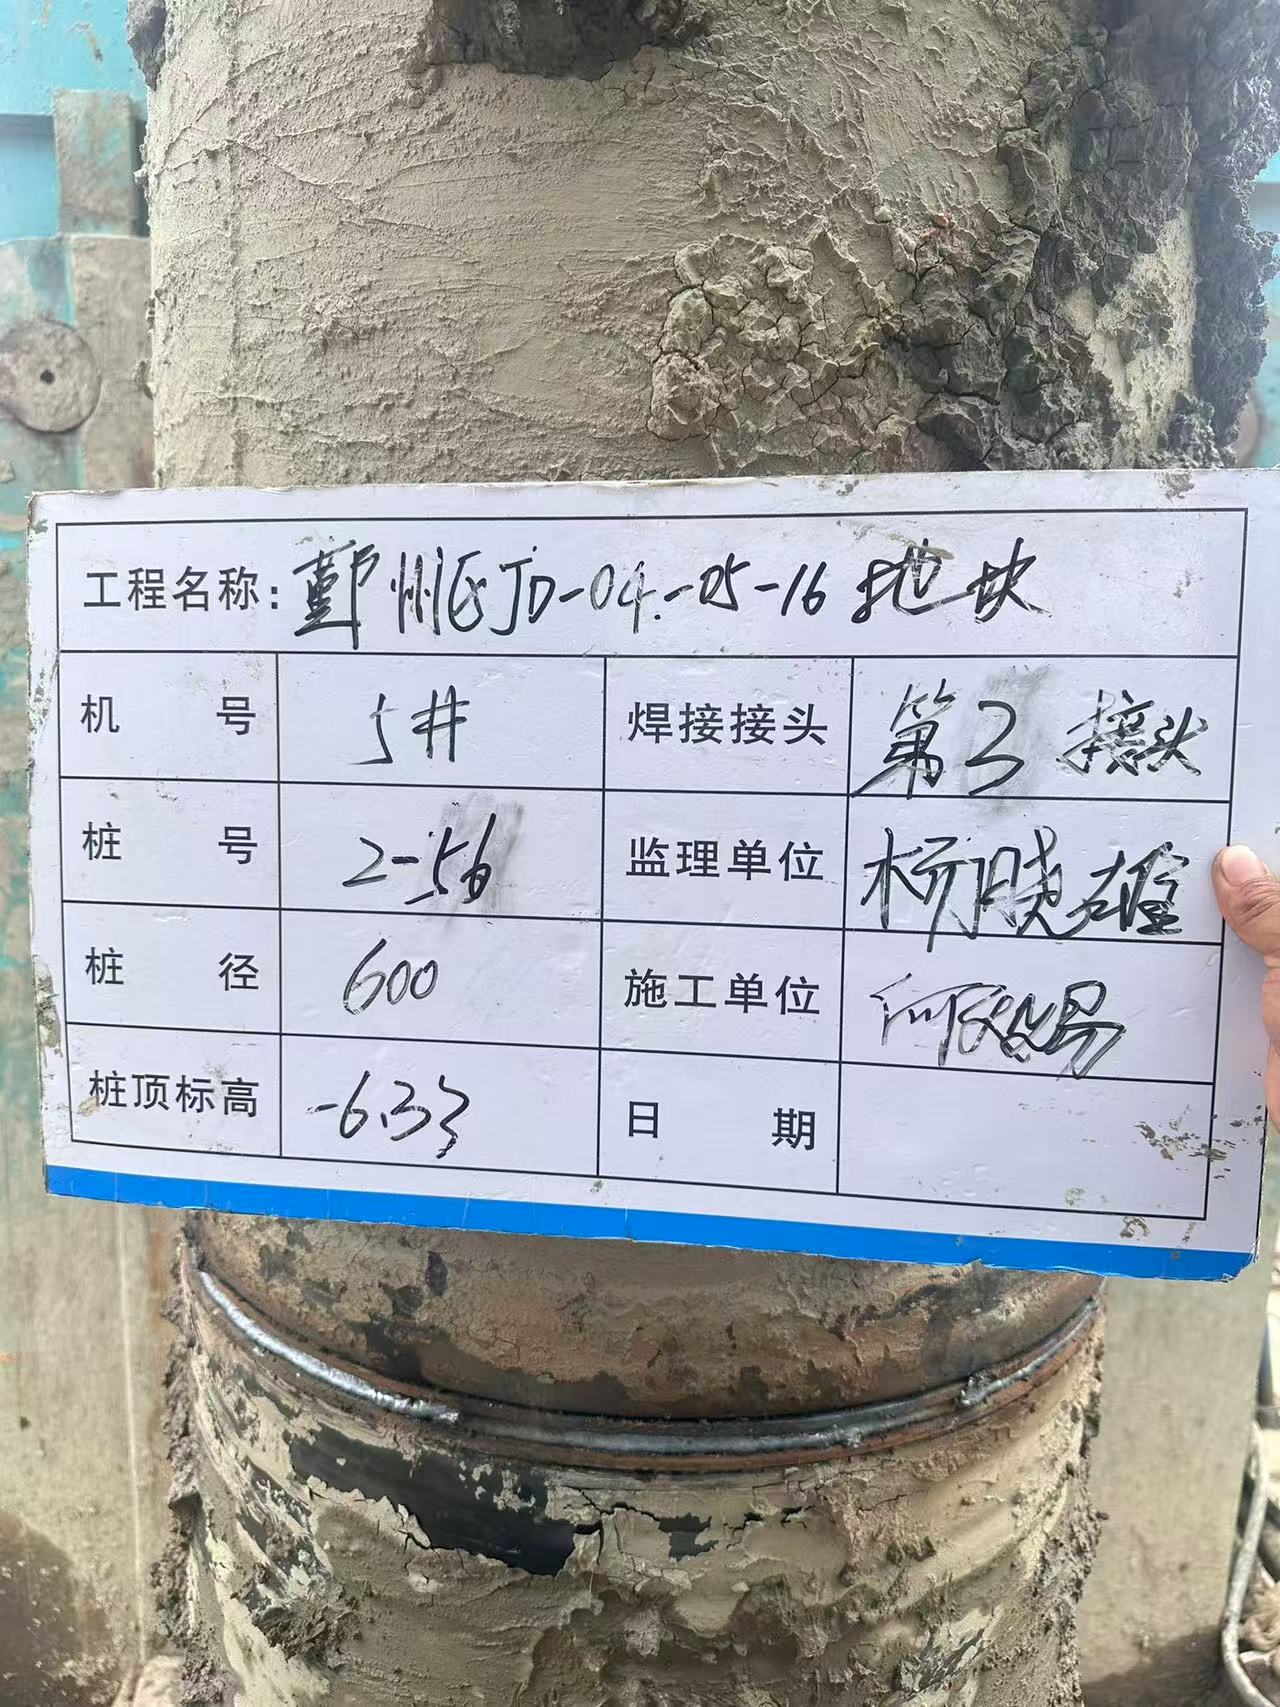 工程名称: 鄞州区JD-04-05-16地块
机号 5# 焊接接头 第3接头
桩号 2-56 监理单位 杨晓雄
桩径 600 施工单位
桩顶标高 -6.33 日期